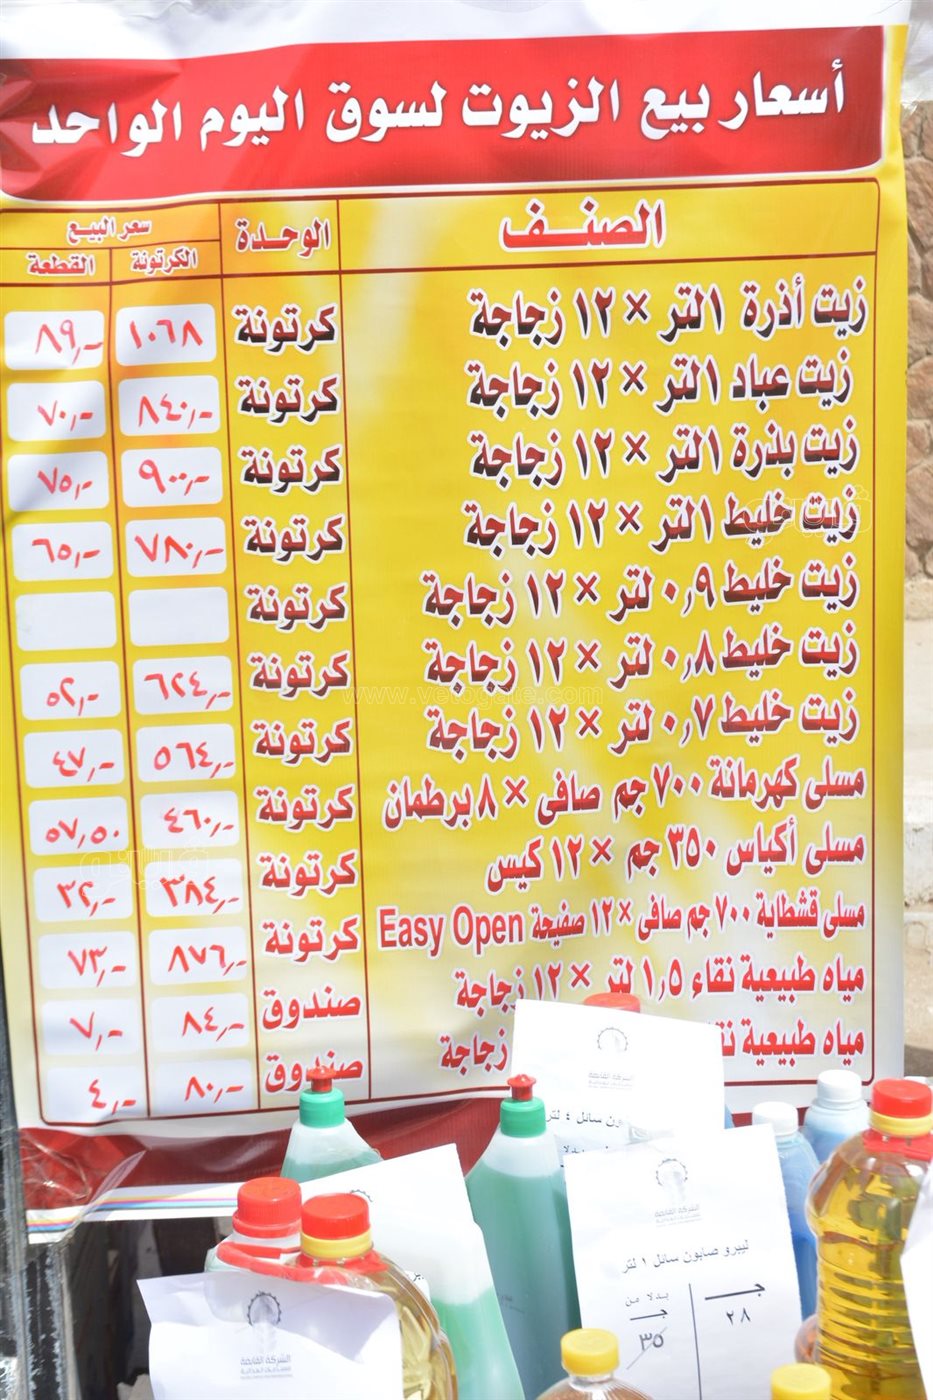 أسعار بيع الزيوت لسوق اليوم الواحد
الصنف الوحدة سعر البيع
الكرتونة القطعة
زيت أذرة ١لتر × ١٢ زجاجة كرتونة ١٠٦٨ ٨٩,-
زيت عباد ١لتر × ١٢ زجاجة كرتونة ٨٤٠,- ٧٠,-
زيت بذرة ١لتر × ١٢ زجاجة كرتونة ٩٠٠,- ٧٥,-
زيت خليط ١لتر × ١٢ زجاجة كرتونة ٧٨٠,- ٦٥,-
زيت خليط ٠,٩ لتر × ١٢ زجاجة كرتونة
زيت خليط ٠,٨ لتر × ١٢ زجاجة كرتونة ٦٢٤,- ٥٢,-
زيت خليط ٠,٧ لتر × ١٢ زجاجة كرتونة ٥٦٤,- ٤٧,-
مسلى كهرمانة ٧٠٠ جم صافى × ٨ برطمان كرتونة ٤٦٠,- ٥٧,٥٠
مسلى أكياس ٣٥٠ جم × ١٢ كيس كرتونة ٣٨٤,- ٣٢,-
مسلى قشطاية ٧٠٠ جم صافى × ١٢ صفيحة Easy Open كرتونة ٨٧٦,- ٧٣,-
مياه طبيعية نقاء ١,٥ لتر × ١٢ زجاجة صندوق ٨٤,- ٧,-
مياه طبيعية زجاجة صندوق ٨٠,- ٤,-
www.vetogate.com
فيتو
الشركة القابضة
صابون سائل ٤ لتر
الشركة القابضة
ليبرو صابون سائل ١ لتر
جـ بدلا من
جـ
٢٨ ٣٥
الشركة القابضة